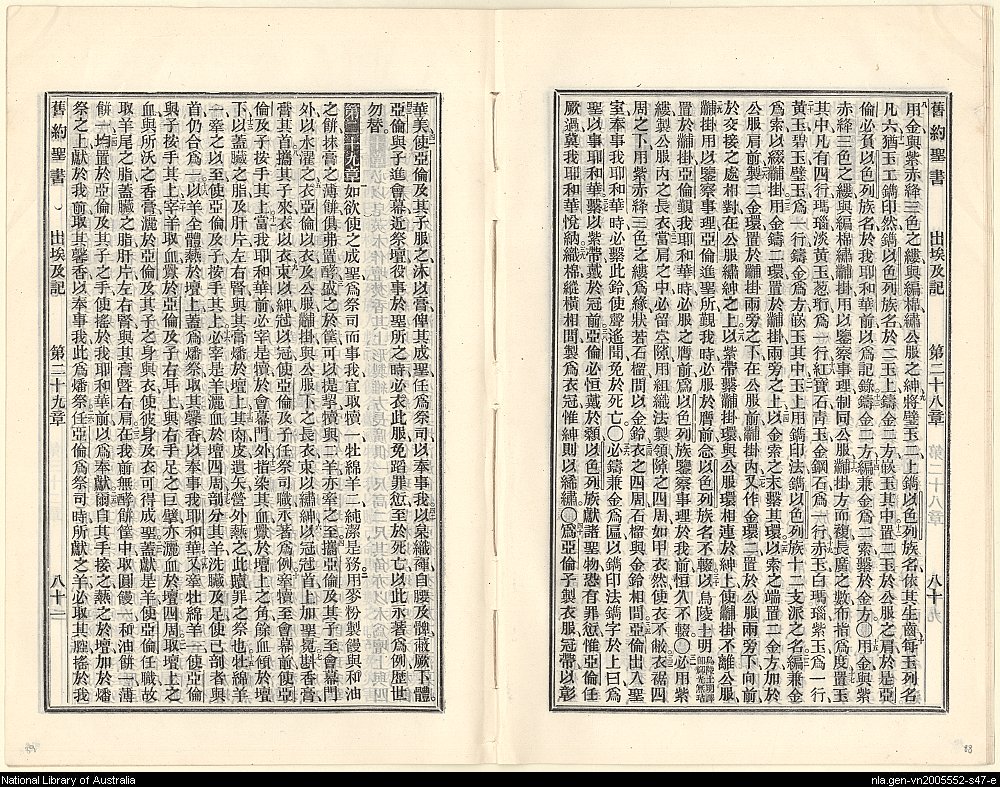 舊約聖書 出埃及記 第二十八章 八十
用金與紫赤絳三色之縷與編棉繡公服之紳將璧玉二上鐫以色列族名依其生齒每玉列名
凡六猶玉工鐫印然鐫以色列族名於二玉上鑄金二方嵌玉其中置二玉於公服之肩於是亞
倫必負以色列族名於我耶和華前以爲記錄鑄金二方編兼金爲二索繫於金方〇用金與紫
赤絳三色之縷與編棉繡黼掛用以鑒察事理制同公服黼掛方而複長廣之數布指爲度置玉
其中凡有四行瑪瑙淡黃玉葱珩爲一行紅寶石靑玉金鋼石爲一行赤玉白瑪瑙紫玉爲一行
黃玉碧玉璧玉爲一行鑄金爲方嵌玉其中玉上用鐫印法鐫以色列族十二支派之名編兼金
爲索以綴黼掛用金鑄二環置於黼掛兩旁之上以金索之末繫其環以索之端置二金方加於
公服肩前製二金環置於黼掛兩旁之下在公服前黼掛內又作金環二置於公服兩旁下向前
於交接之處相對在公服繡紳之上以紫帶繫黼掛環與公服環相連於紳上使黼掛不離公服
黼掛用以鑒察事理亞倫進聖所覲我時必服於膺前念以色列族名不輟以烏陵土明
置於黼掛亞倫覲我耶和華時必服之膺前爲以色列族鑒察事理於我前恒久不輟〇必用紫
縷製公服內之長衣當肩之中必留空隙用組織法製領隙之四周如甲衣然使衣不敝衣裾四
周之下用紫赤絳三色之縷爲緣狀若石榴間以金鈴衣之四周石榴與金鈴相間亞倫出入聖
室奉事我耶和華時必繫此鈴使聲遙聞免於死亡〇必鑄兼金爲匾以鐫印法鐫字於上曰爲
聖以事耶和華繫以紫帶戴於冠前亞倫必恒戴於顙以色列族獻諸聖物恐有罪愆惟亞倫任
厥過冀我耶和華悅納織棉縱橫相間製爲衣冠惟紳則以絺繡〇爲亞倫子製衣服冠帶以彰
華美使亞倫及其子服之沐以膏俾其成聖任爲祭司以奉事我以枲織褌自腰及髀蔽厥下體
亞倫與子進會幕近祭壇役事於聖所之時必衣此服免蹈罪愆至於死亡以此永著爲例歷世
勿替
第二十九章 如欲使之成聖爲祭司而事我宜取犢一牡綿羊二純潔是務用麥粉製饅與和油
之餅抹膏之薄餅俱弗置酵盛之於筐可以提挈犢與二羊亦牽之至攜亞倫及其子至會幕門
外以水濯之衣亞倫以衣及公服黼掛與公服下之長衣束以繡紳以冠冠首上加聖冕斟香膏
膏其首攜其子來衣以衣束以紳冠以冠使亞倫及子任祭司職永著爲例牽犢至會幕前使亞
倫及子按手其上當我耶和華前必宰是犢於會幕門外指染其血釁於壇上之角餘血傾於壇
下以蓋臟之脂及肝片左右腎與其膏燔於壇上其肉皮遺矢營外爇之此贖罪之祭也牡綿羊
一牽之以至使亞倫及子按手其上必宰是羊灑血於壇四周剖分其羊洗臟及足使已剖者與
首仍合爲一以羊全體爇於壇上爲燔祭取其馨香以奉事我耶和華又牽牡綿羊一使亞倫
與子按手其上宰羊取血釁於亞倫及子右耳上與右手足之巨擘亦灑血於壇四周取壇上之
血與所沃之香膏灑於亞倫及其子之身與衣使彼身及衣可得成聖蓋獻是羊使亞倫任職故
取羊尾之脂蓋臟之脂肝片左右腎與其膏曁右肩在我前無酵餅筐中取圓饅一和油餅一薄
餅一均置於亞倫及其子之手使搖於我耶和華前以爲奉獻爾自其手接之爇之於壇加於燔
祭之上獻於我前取其馨香以奉事我此爲燔祭任亞倫爲祭司時所獻之羊必取其腔搖於我
舊約聖書 出埃及記 第二十九章 八十一
88
89
National Library of Australia
nla.gen-vn2005552-s47-e